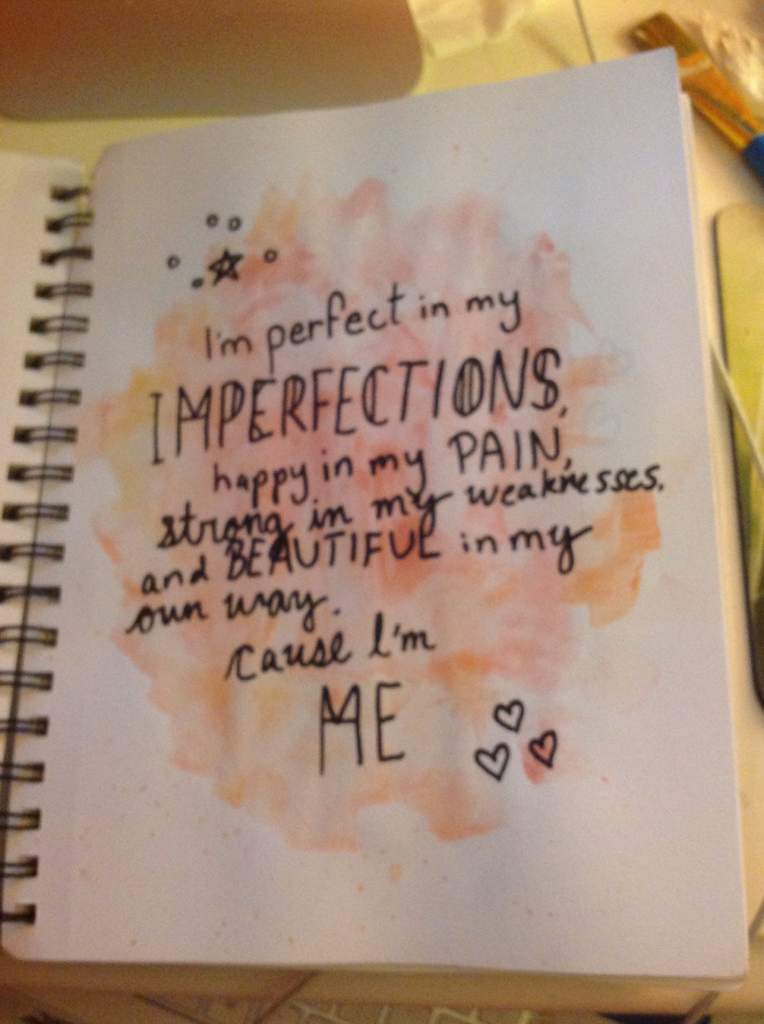 I'm perfect in my
IMPERFECTIONS,
happy in my PAIN,
strong in my weaknesses,
and BEAUTIFUL in my
own way.
cause I'm
ME